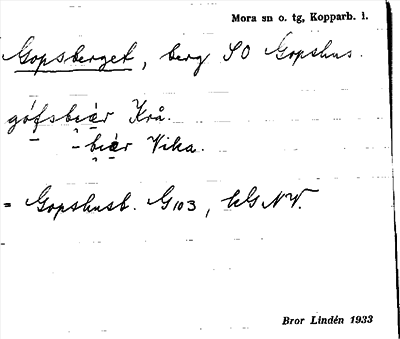 Mora sn o. tg, Kopparb. l.
Gopsberget, berg SO Gopshus.
gófsbiér Krå.
-biér Vika.
= Gopshusb. G103, kG NV.
Bror Lindén 1933